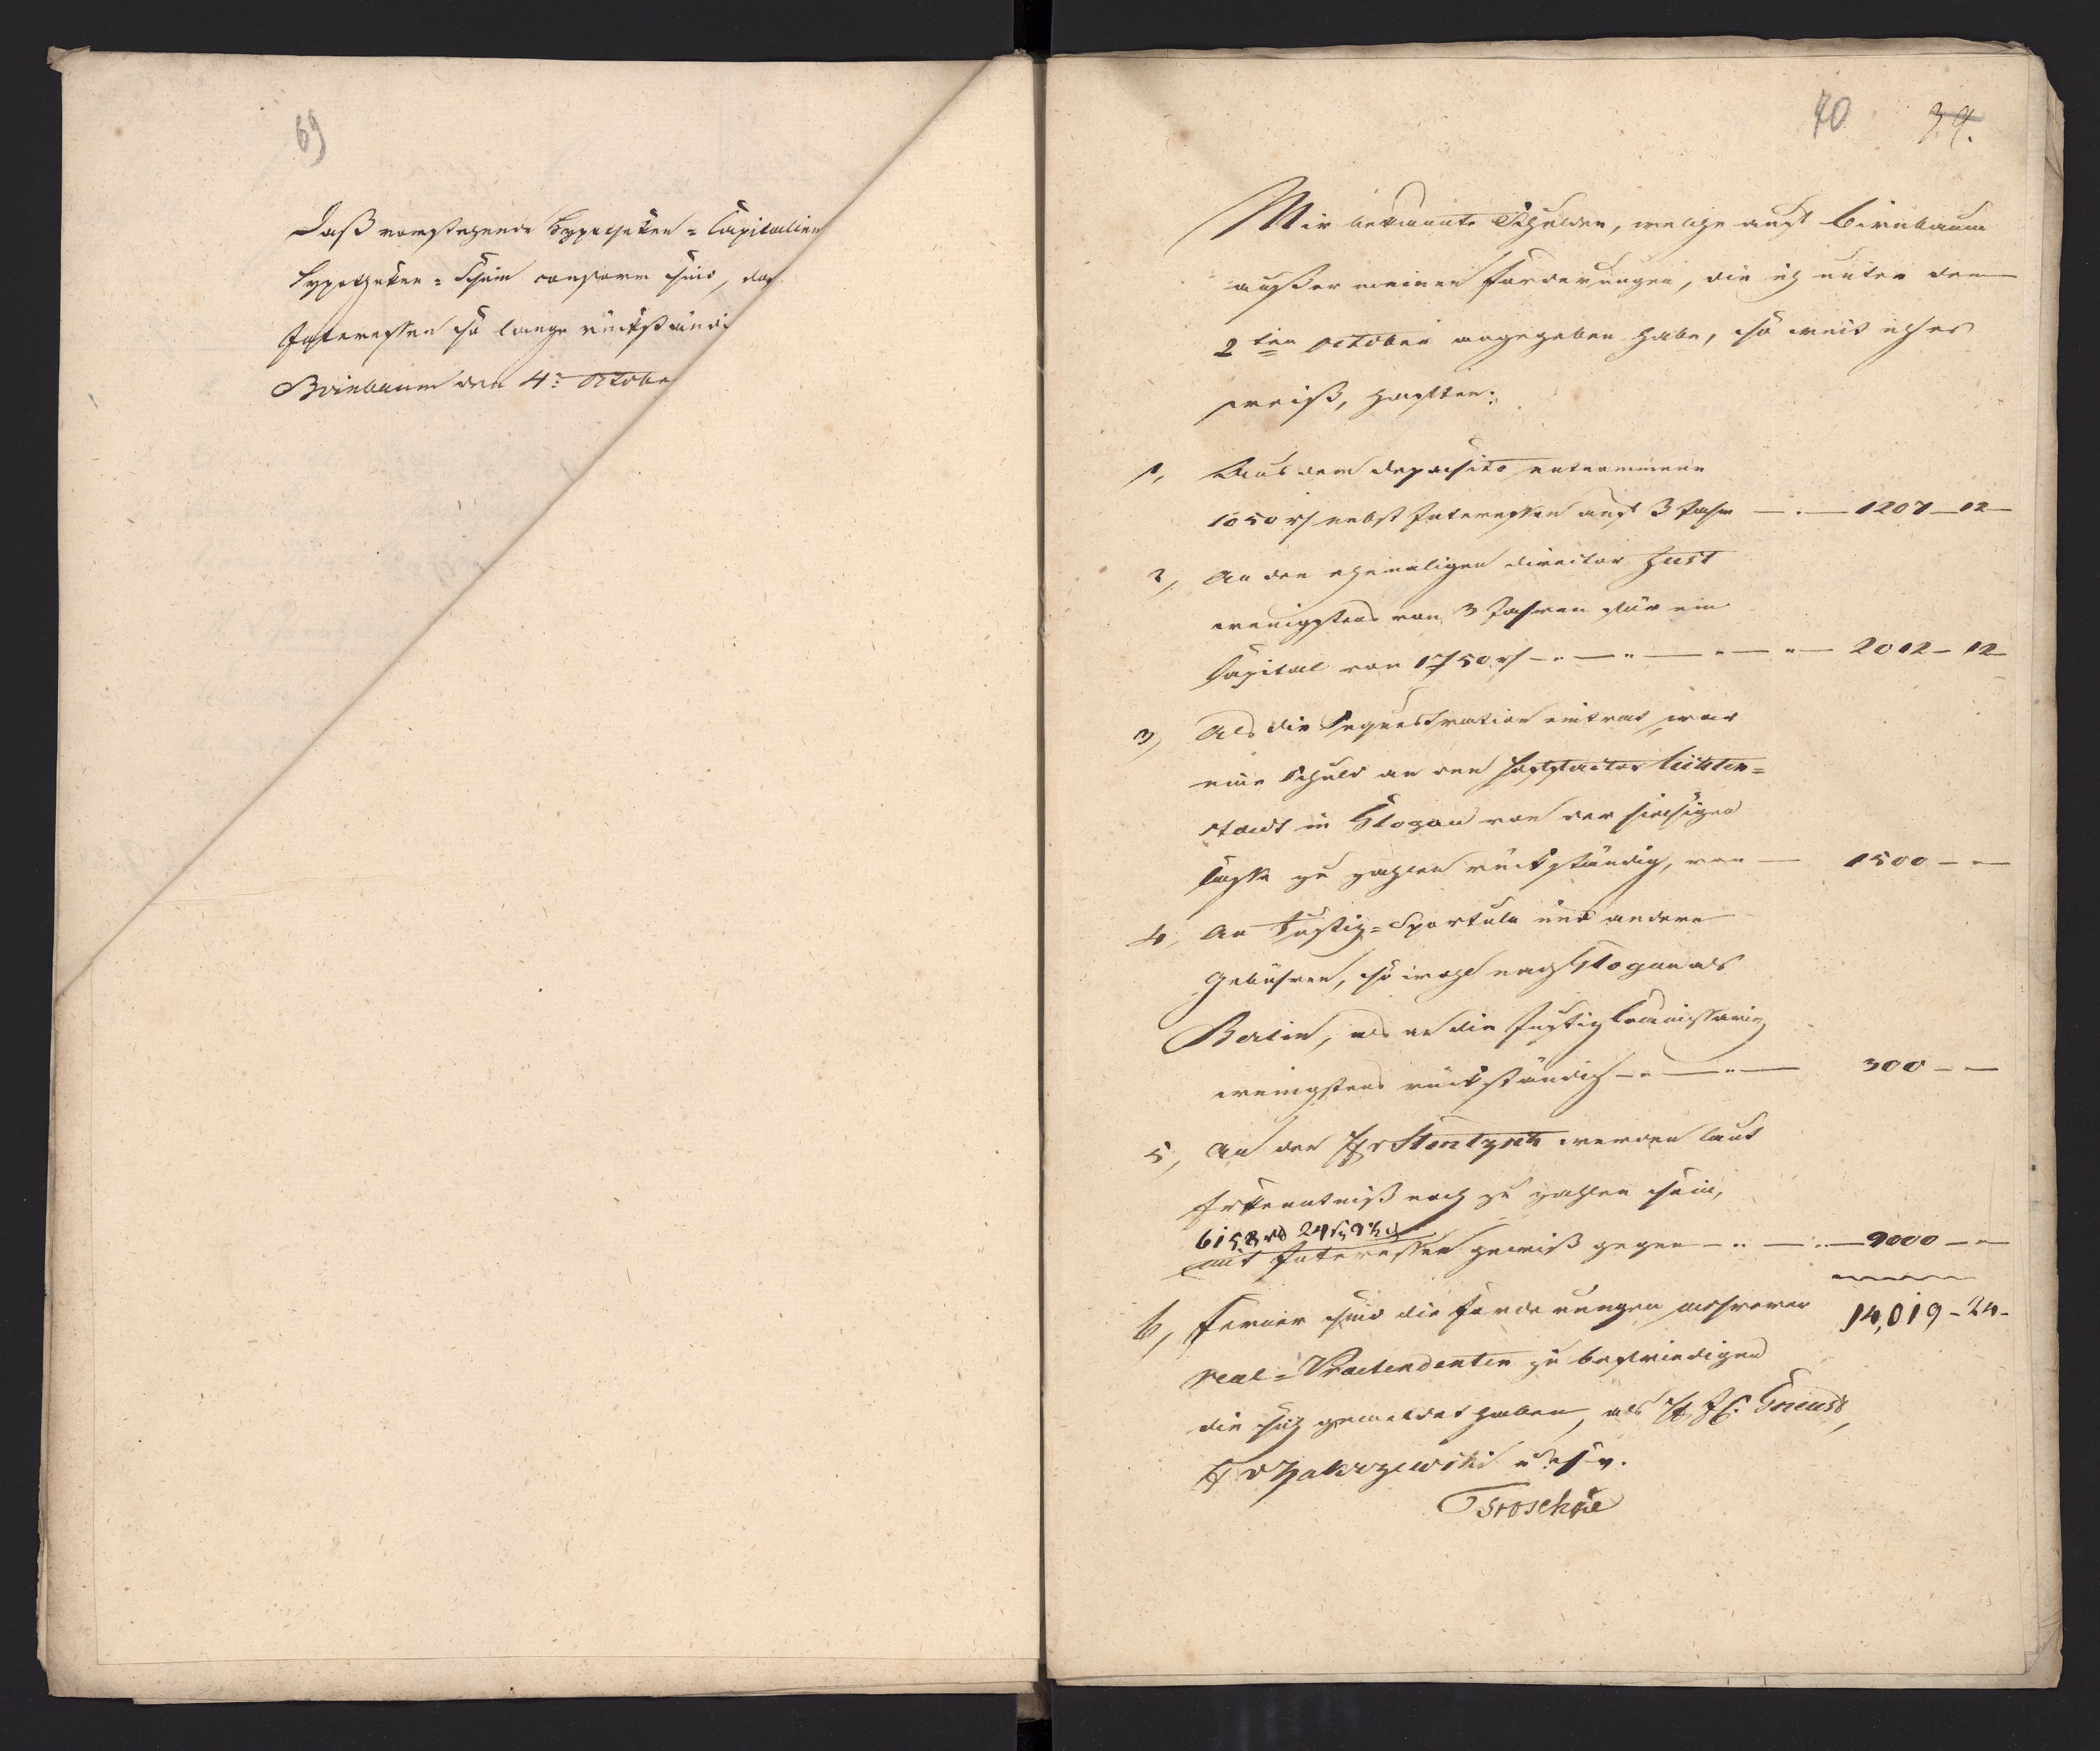 69
Daß vorstehende Hypotheken = Capitalien
Hypotheken = Schein conform sind, daß
Interessen so lange rückständi
Birnbaum den 4t October
70 34.
Mir bekannte Schulden, welche auf Birnbaum
außer meinen Forderungen, die ich unter dem
2ten October angegeben habe, so weit ich es
weiß, haften:
1, Aus dem deposito entnommene
1050 rf nebst Interessen auf 3 Jahre — . — 1207 — 12 —
2, An den ehemaligen director Just
wenigstens von 3 Jahren für ein
Capital von 1750 rf — . — . — . — . — 2012 — 12
3, Als die Sequestration eintrat, war
eine Schuld an den Hoffactor Lichten=
stadt in Glogau von der hiesigen
Casse zu zahlen rückständig, von — 1500 — —
4, An Justiz = Sportuln und andere
Gebühren, so wohl nach Glogau als
Berlin, als an die Justiz Commissarien
wenigstens rückständig — . — . — 300 — —
5, An den H v Stentzsch werden laut
Erkenntniß noch zu zahlen sein,
6158 rt 24
mit Interessen gewiß gegen — . — . — 9000 — —
14,019 - 24 -
6, Ferner sind die Forderungen mehrerer
real = Praetendenten zu befriedigen
die sich gemeldet haben, als H J. C. Gneust,
H v Zakrzewski u. s. w.
Troschke